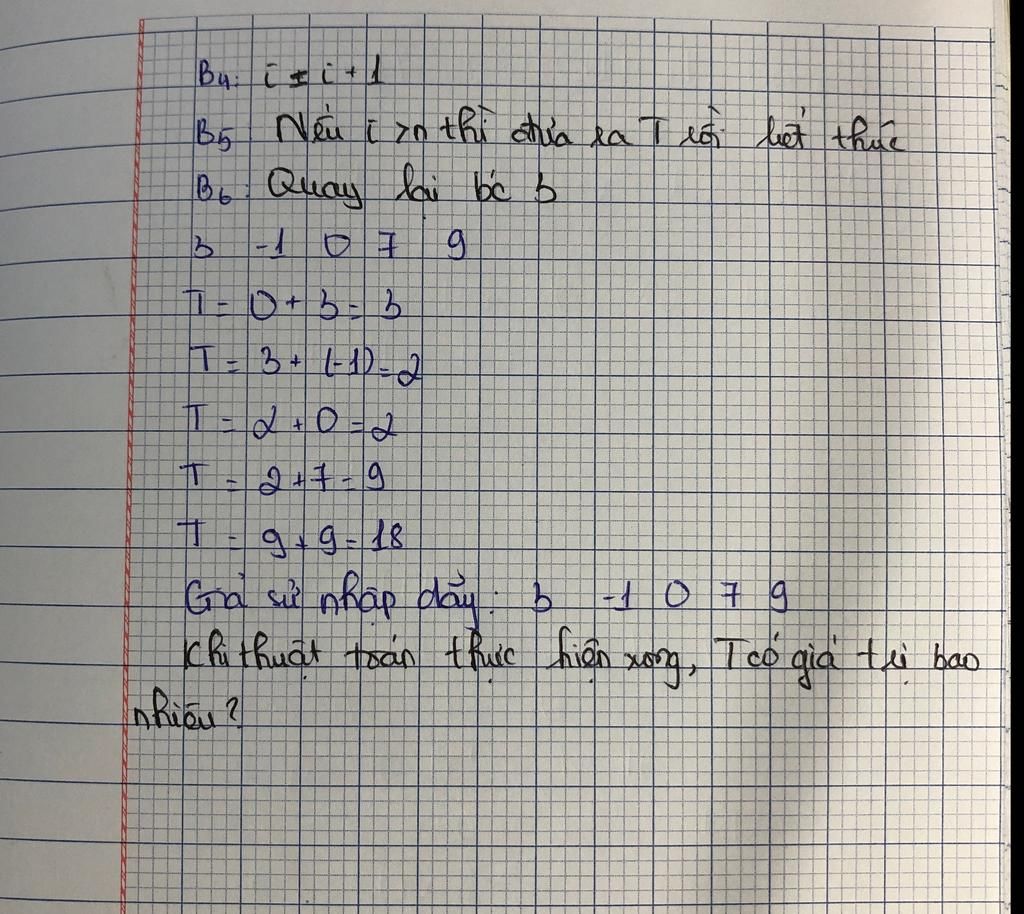 B4: i = i + 1
B5 Nếu i > n thì đưa ra T rồi kết thúc
B6: Quay lại bc 3
3 -1 0 7 9
T = 0 + 3 = 3
T = 3 + (-1) = 2
T = 2 + 0 = 2
T = 2 + 7 = 9
T = 9 + 9 = 18
Giả sử nhập dãy: 3 -1 0 7 9
Khi thuật toán thực hiện xong, T có giá trị bao
nhiêu?